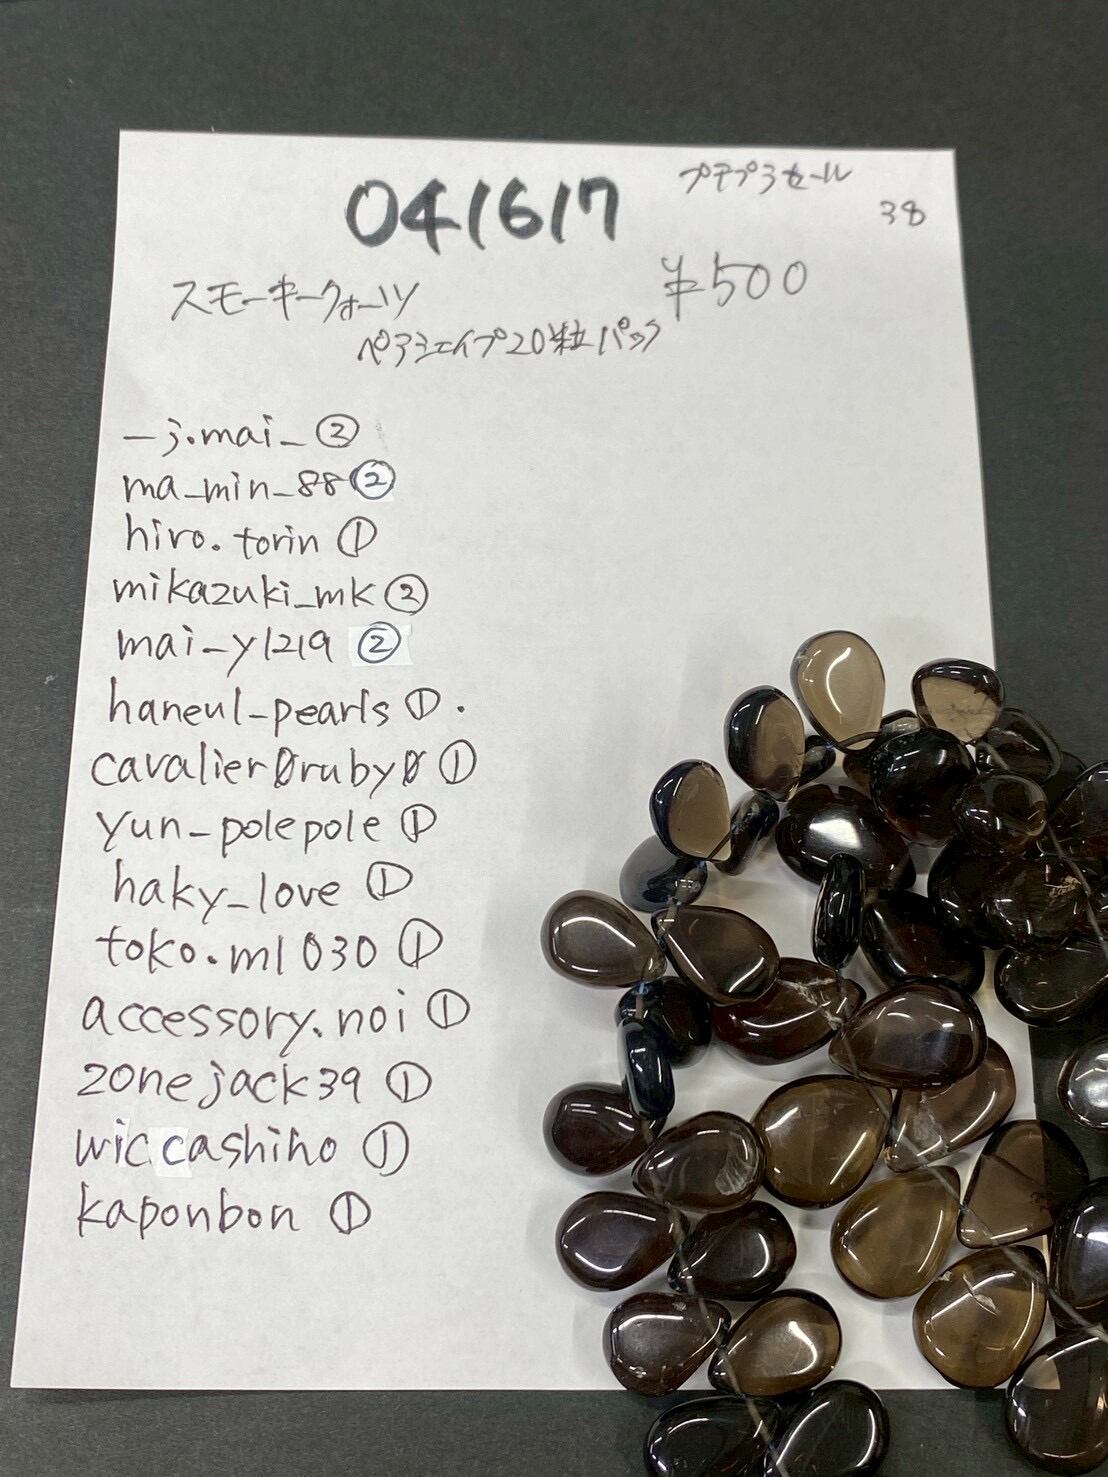 プチプラセール
38
041617
¥500
スモーキークォーツ
ペアシェイプ20粒パック
_j.mai_ ②
ma_min_88 ②
hiro.torin ①
mikazuki_mk ②
mai_y1219 ②
haneul_pearls ① .
cavalier0ruby0 ①
yun_polepole ①
haky_love ①
toko.m1030 ①
accessory.noi ①
zonejack39 ①
wiccashiho ①
kaponbon ①